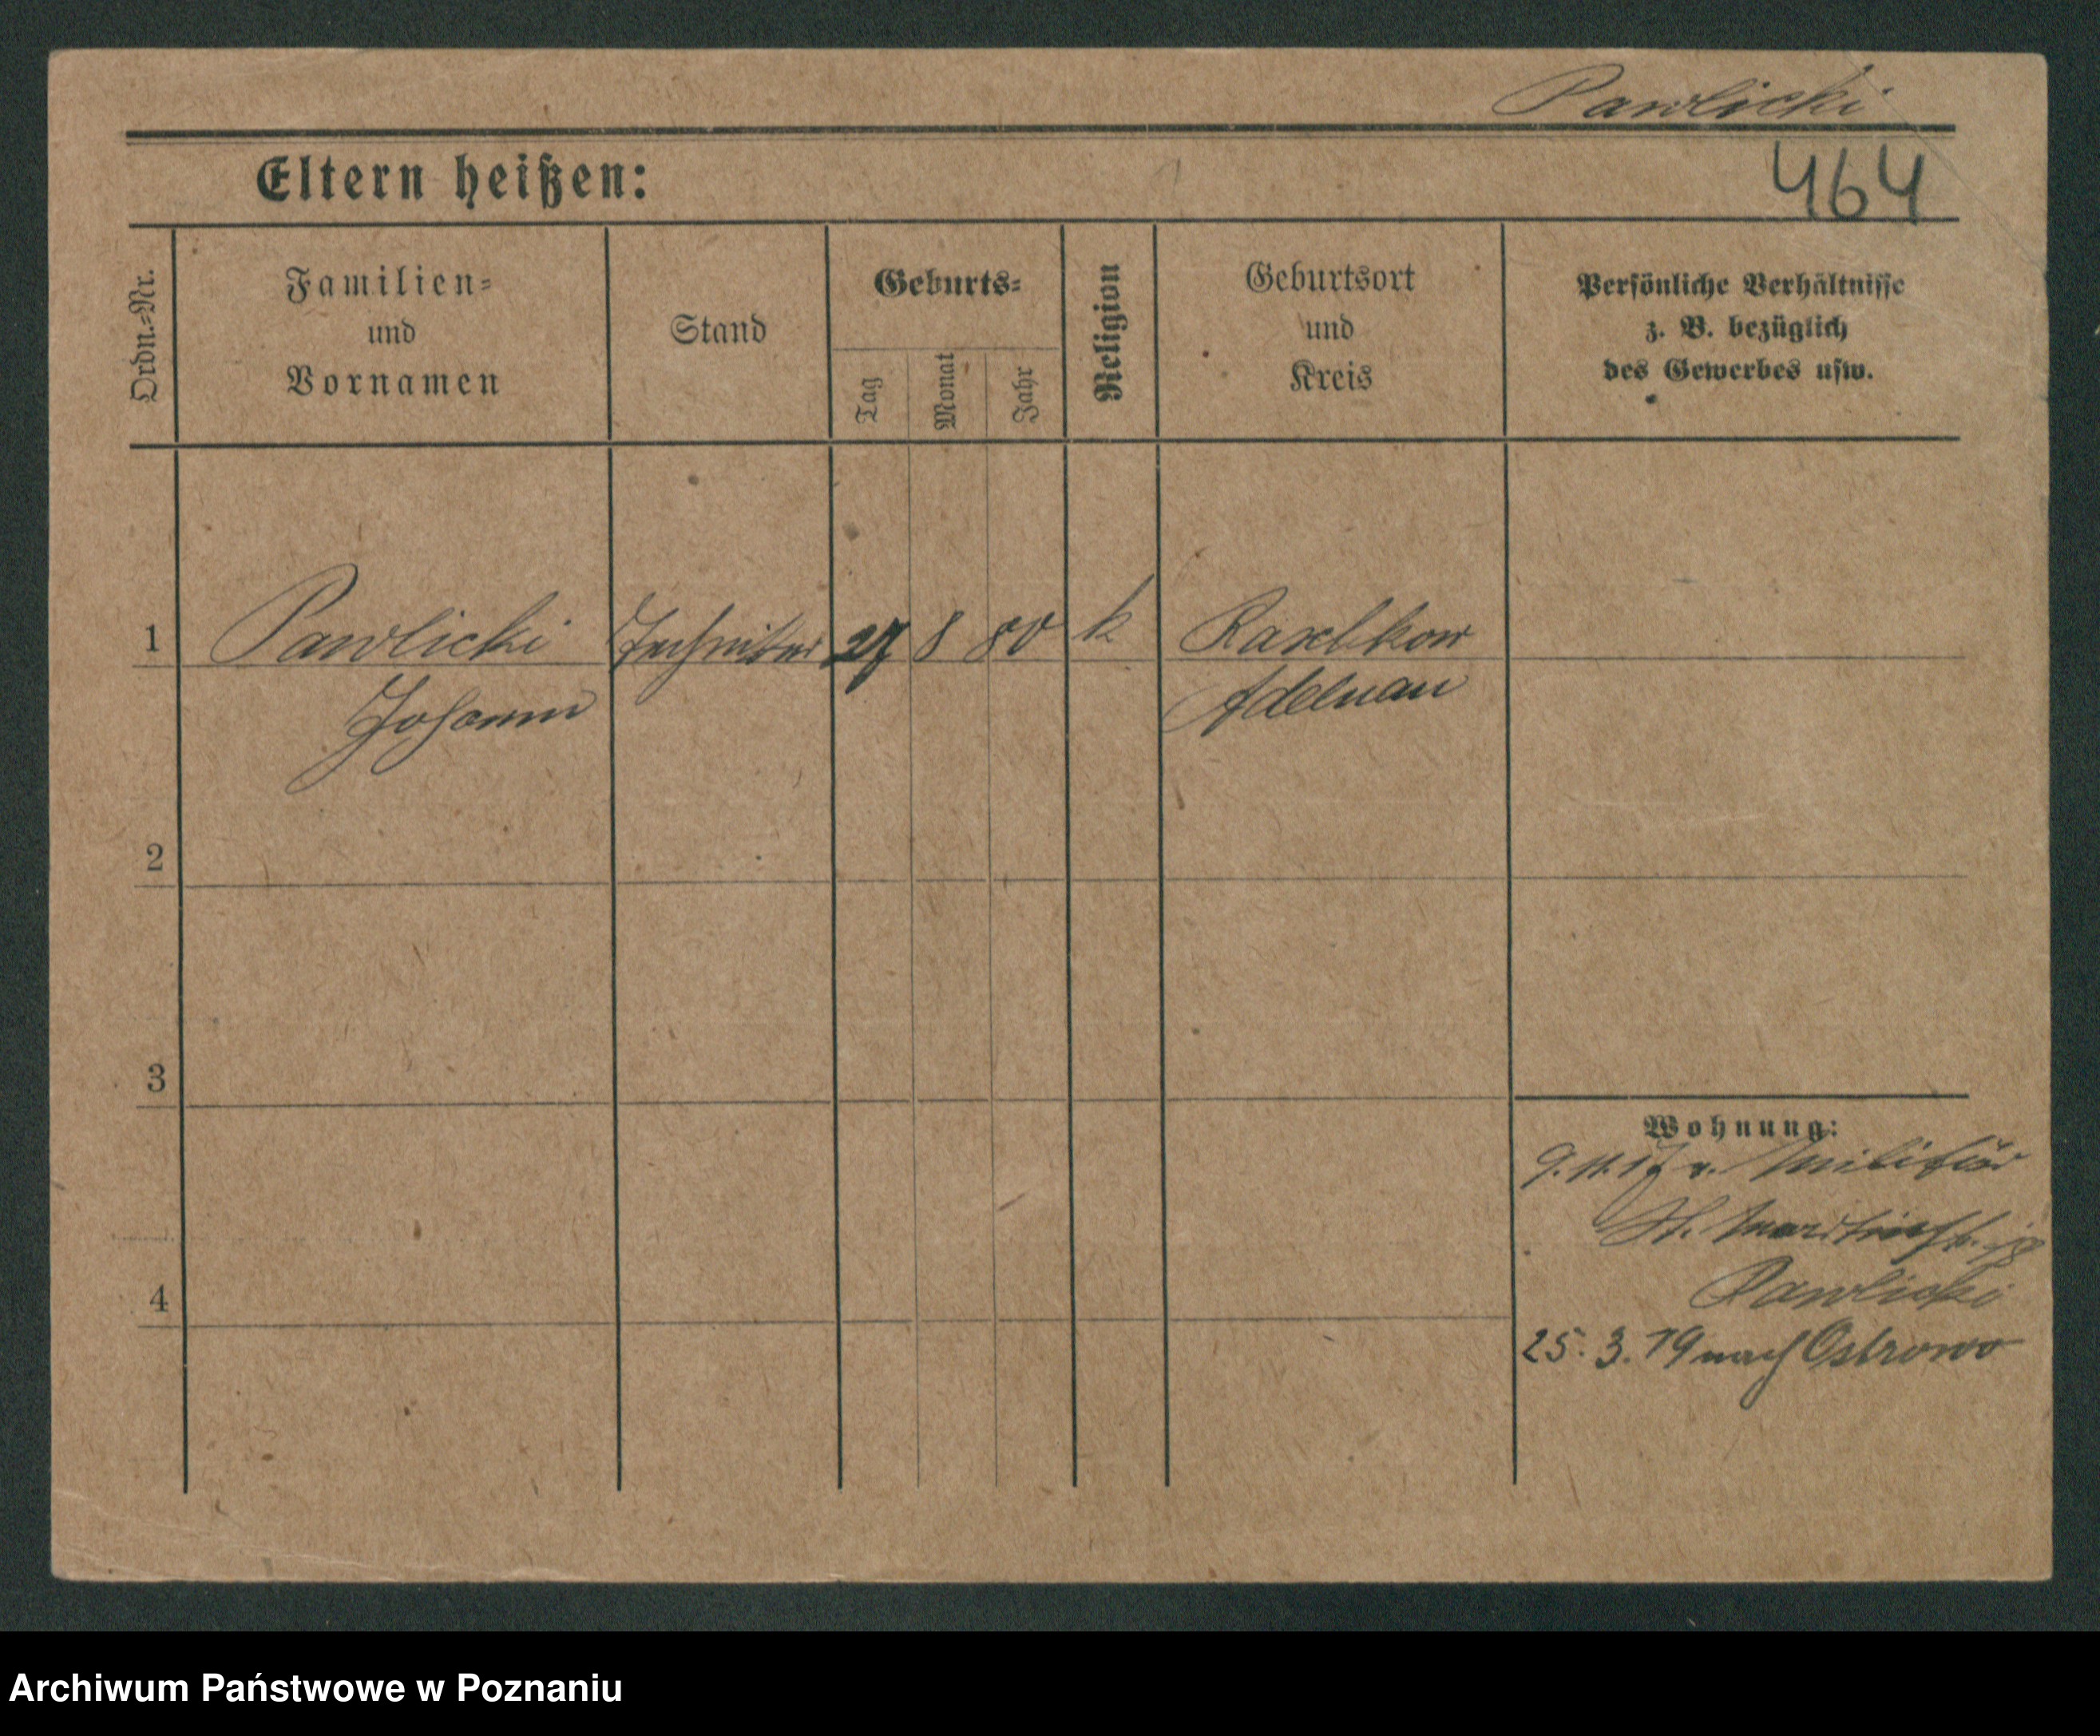 Pawlicki
464
Eltern heißen:
Ordn.-Nr.
Familien-
und
Vornamen
Stand
Geburts-
Tag
Monat
Jahr
Religion
Geburtsort
und
Kreis
Persönliche Verhältnisse
z. B. bezüglich
des Gewerbes usw.
1 Pawlicki Techniker 27 8 80 k Raschkow
Johann Adelnau
2
3
4
Wohnung:
9.11.17 v. Militär
St. Martinstr.
Pawlicki
25. 3. 19 nach Ostrowo
Archiwum Państwowe w Poznaniu